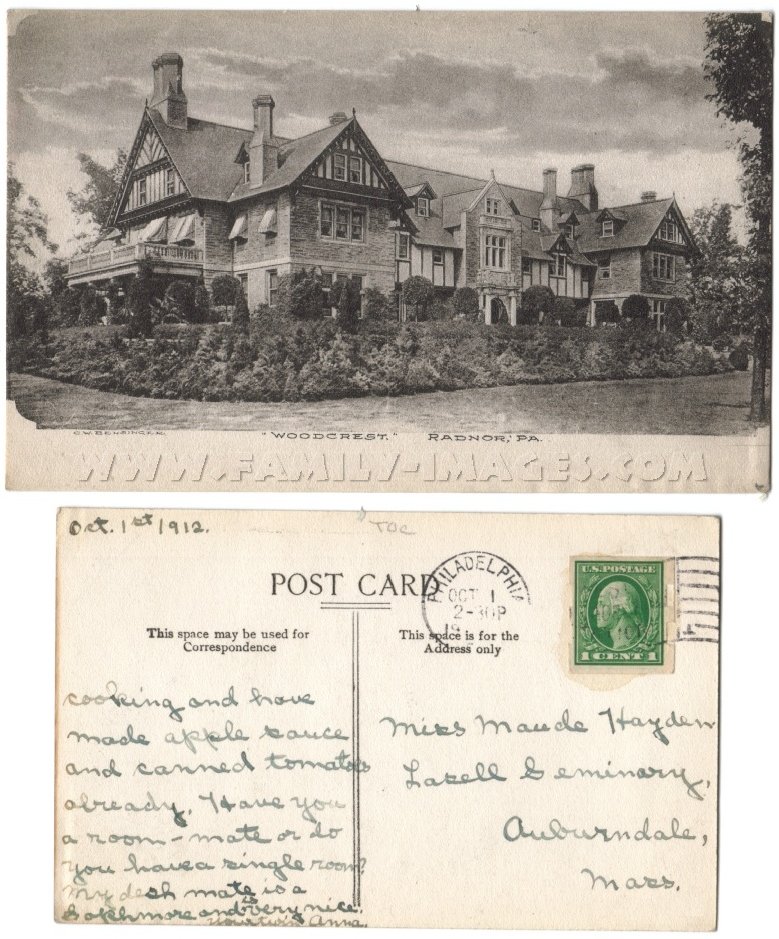 C.W. BENSINGER.
"WOODCREST." RADNOR, PA.
WWW.FAMILY-IMAGES.COM
Oct. 1st/1912.
TOC
POST CARD
PHILADELPHIA
OCT 1
2-30P
19
U.S. POSTAGE
1 CENT 1
This space may be used for
Correspondence
This space is for the
Address only
cooking and have
made apple sauce
and canned tomatoes
already. Have you
a room-mate or do
you have a single room?
My desk mate is a
Sophmore and is very nice.
Anna.
Miss Maude Hayden
Lasell Seminary,
Auburndale,
Mass.